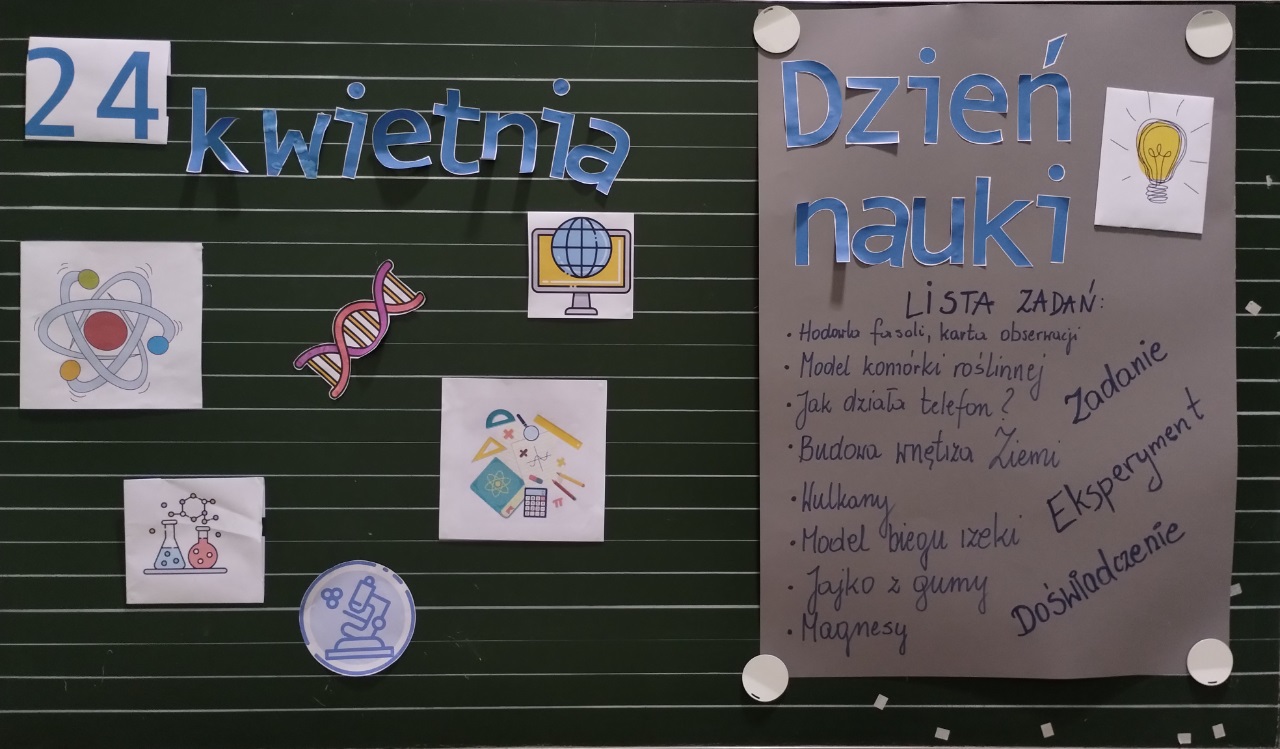 24 kwietnia
Dzień
nauki
LISTA ZADAŃ:
• Hodowla fasoli, karta obserwacji
• Model komórki roślinnej
• Jak działa telefon?
• Budowa wnętrza Ziemi
• Wulkany
• Model biegu rzeki
• Jajko z gumy
• Magnesy
Zadanie
Eksperyment
Doświadczenie